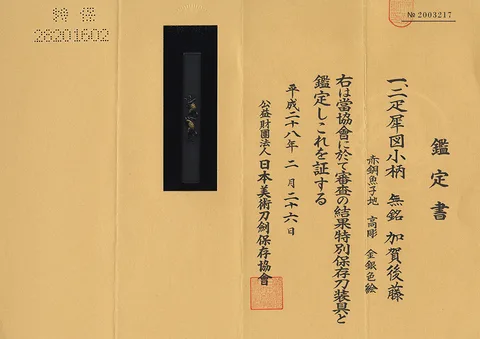 鑑定書
一、二疋犀図小柄 無銘 加賀後藤
赤銅魚子地 高彫 金銀色絵
右は當協會に於て審査の結果特別保存刀装具と
鑑定しこれを証する
平成二十八年 二月二十六日
公益財團法人 日本美術刀劍保存協會
№ 2003217
特保
28201602